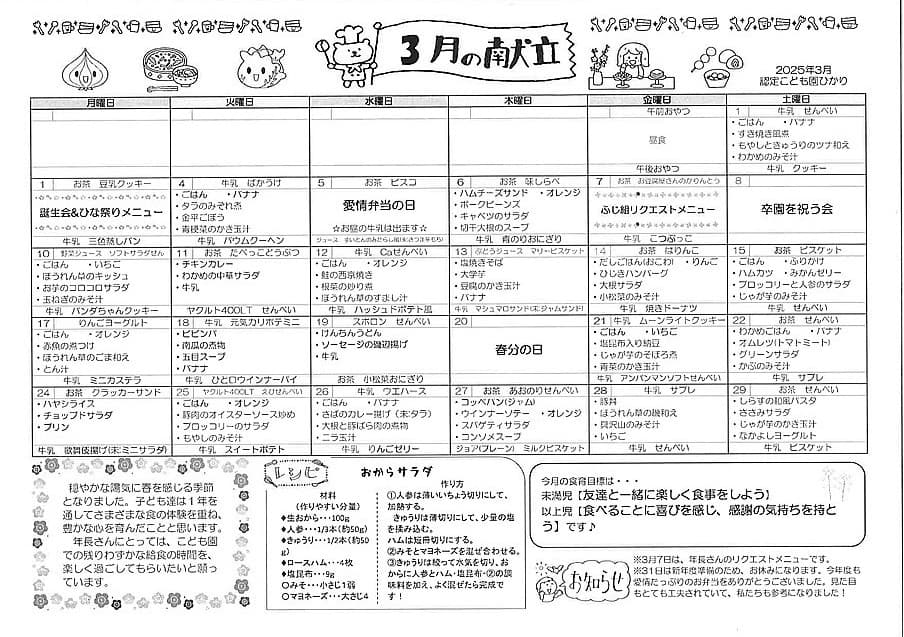 3月の献立
2025年3月
認定こども園ひかり
月曜日 火曜日 水曜日 木曜日 金曜日 土曜日
午前おやつ
昼食
午後おやつ
1 牛乳 せんべい
・ごはん ・バナナ
・すき焼き風煮
・もやしときゅうりのツナ和え
・わかめのみそ汁
牛乳 クッキー
1 お茶 豆乳クッキー
誕生会&ひな祭りメニュー
牛乳 三色蒸しパン
4 牛乳 ばかうけ
・ごはん ・バナナ
・タラのみぞれ煮
・金平ごぼう
・青梗菜のかき玉汁
牛乳 バウムクーヘン
5 お茶 ビスコ
愛情弁当の日
☆お昼の牛乳は出ます☆
6 お茶 味しらべ
・ハムチーズサンド ・オレンジ
・ポークビーンズ
・キャベツのサラダ
・切干大根のスープ
牛乳 青のりおにぎり
7 お茶 お豆腐屋さんのかりんとう
ふじ組リクエストメニュー
牛乳 こつぶっこ
8
卒園を祝う会
10 野菜ジュース ソフトサラダせん
・ごはん ・いちご
・ほうれん草のキッシュ
・お芋のコロコロサラダ
・玉ねぎのみそ汁
牛乳 パンダちゃんクッキー
11 お茶 たべっこどうぶつ
・チキンカレー
・わかめの中華サラダ
・牛乳
ヤクルト400LT せんべい
12 牛乳 Caせんべい
・ごはん ・オレンジ
・鮭の西京焼き
・根菜の炒り煮
・ほうれん草のすまし汁
牛乳 ハッシュドポテト風
13 ぶどうジュース マリービスケット
・塩焼きそば
・大学芋
・豆腐のかき玉汁
・バナナ
牛乳 マシュマロサンド(未:ジャムサンド)
14 お茶 はりんこ
・だしごはん(おこわ) ・りんご
・ひじきハンバーグ
・大根サラダ
・小松菜のみそ汁
牛乳 焼きドーナツ
15 お茶 ビスケット
・ごはん ・ふりかけ
・ハムカツ ・みかんゼリー
・ブロッコリーと人参のサラダ
・じゃが芋のみそ汁
牛乳 せんべい
17 りんごヨーグルト
・ごはん ・オレンジ
・赤魚の煮つけ
・ほうれん草のごま和え
・とん汁
牛乳 ミニカステラ
18 牛乳 元気カリポテミニ
・ビビンバ
・南瓜の煮物
・五目スープ
・バナナ
牛乳 ひとロウインナーパイ
19 スポロン せんべい
・けんちんうどん
・ソーセージの磯辺揚げ
・牛乳
お茶 小松菜おにぎり
20
春分の日
21 牛乳 ムーンライトクッキー
・ごはん ・いちご
・塩昆布入り納豆
・じゃが芋のそぼろ煮
・青菜のかき玉汁
牛乳 アンパンマンソフトせんべい
22 お茶 せんべい
・わかめごはん ・バナナ
・オムレツ(トマトミート)
・グリーンサラダ
・かぶのみそ汁
牛乳 サブレ
24 お茶 クラッカーサンド
・ハヤシライス
・チョップドサラダ
・プリン
牛乳 歌舞伎揚げ(未:ミニサラダ)
25 ヤクルト400LT えびせんべい
・ごはん ・オレンジ
・豚肉のオイスターソース炒め
・ブロッコリーのサラダ
・もやしのみそ汁
牛乳 スイートポテト
26 牛乳 ウエハース
・ごはん ・バナナ
・さばのカレー揚げ(未:タラ)
・大根と豚ばら肉の煮物
・ニラ玉汁
牛乳 りんごゼリー
27 お茶 あおのりせんべい
・コッペパン(ジャム)
・ウインナーソテー ・オレンジ
・スパゲティサラダ
・コンソメスープ
ジョア(プレーン) ミルクビスケット
28 牛乳 サブレ
・豚丼
・ほうれん草の磯和え
・貝沢山のみそ汁
・いちご
牛乳 せんべい
29 お茶 せんべい
・しらすの和風パスタ
・ささみサラダ
・じゃが芋のかき玉汁
・なかよしヨーグルト
牛乳 ビスケット
穏やかな陽気に春を感じる季節
となりました。子ども達は1年を
通してさまざまな食の体験を重ね、
豊かな心を育んだことと思います。
年長さんにとっては、こども園
での残りわずかな給食の時間を、
楽しく過ごしてもらいたいと願
っています。
レシピ
おからサラダ
材料
(作りやすい分量)
◆生おから・・・100g
◆人参・・・1/3本(約50g)
◆きゅうり・・・1/2本(約50g)
◆ロースハム・・・4枚
◆塩昆布・・・9g
○みそ・・・小さじ1弱
○マヨネーズ・・・大さじ4
作り方
①人参は薄いいちょう切りにして、
加熱する。
きゅうりは薄切りにして、少量の塩
を揉み込む。
ハムは短冊切りにする。
②みそとマヨネーズを混ぜ合わせる。
③きゅうりは絞って水気を切り、お
からに人参とハム・塩昆布・②の調
味料を加え、よく混ぜたら完成で
す!
今月の食育目標は・・・
未満児【友達と一緒に楽しく食事をしよう】
以上児【食べることに喜びを感じ、感謝の気持ちを持と
う】です♪
お知らせ
※3月7日は、年長さんのリクエストメニューです。
※31日は新年度準備のため、お休みになります。今年度も
愛情たっぷりのお弁当をありがとうございました。見た目
もとても工夫されていて、私たちも参考になりました!